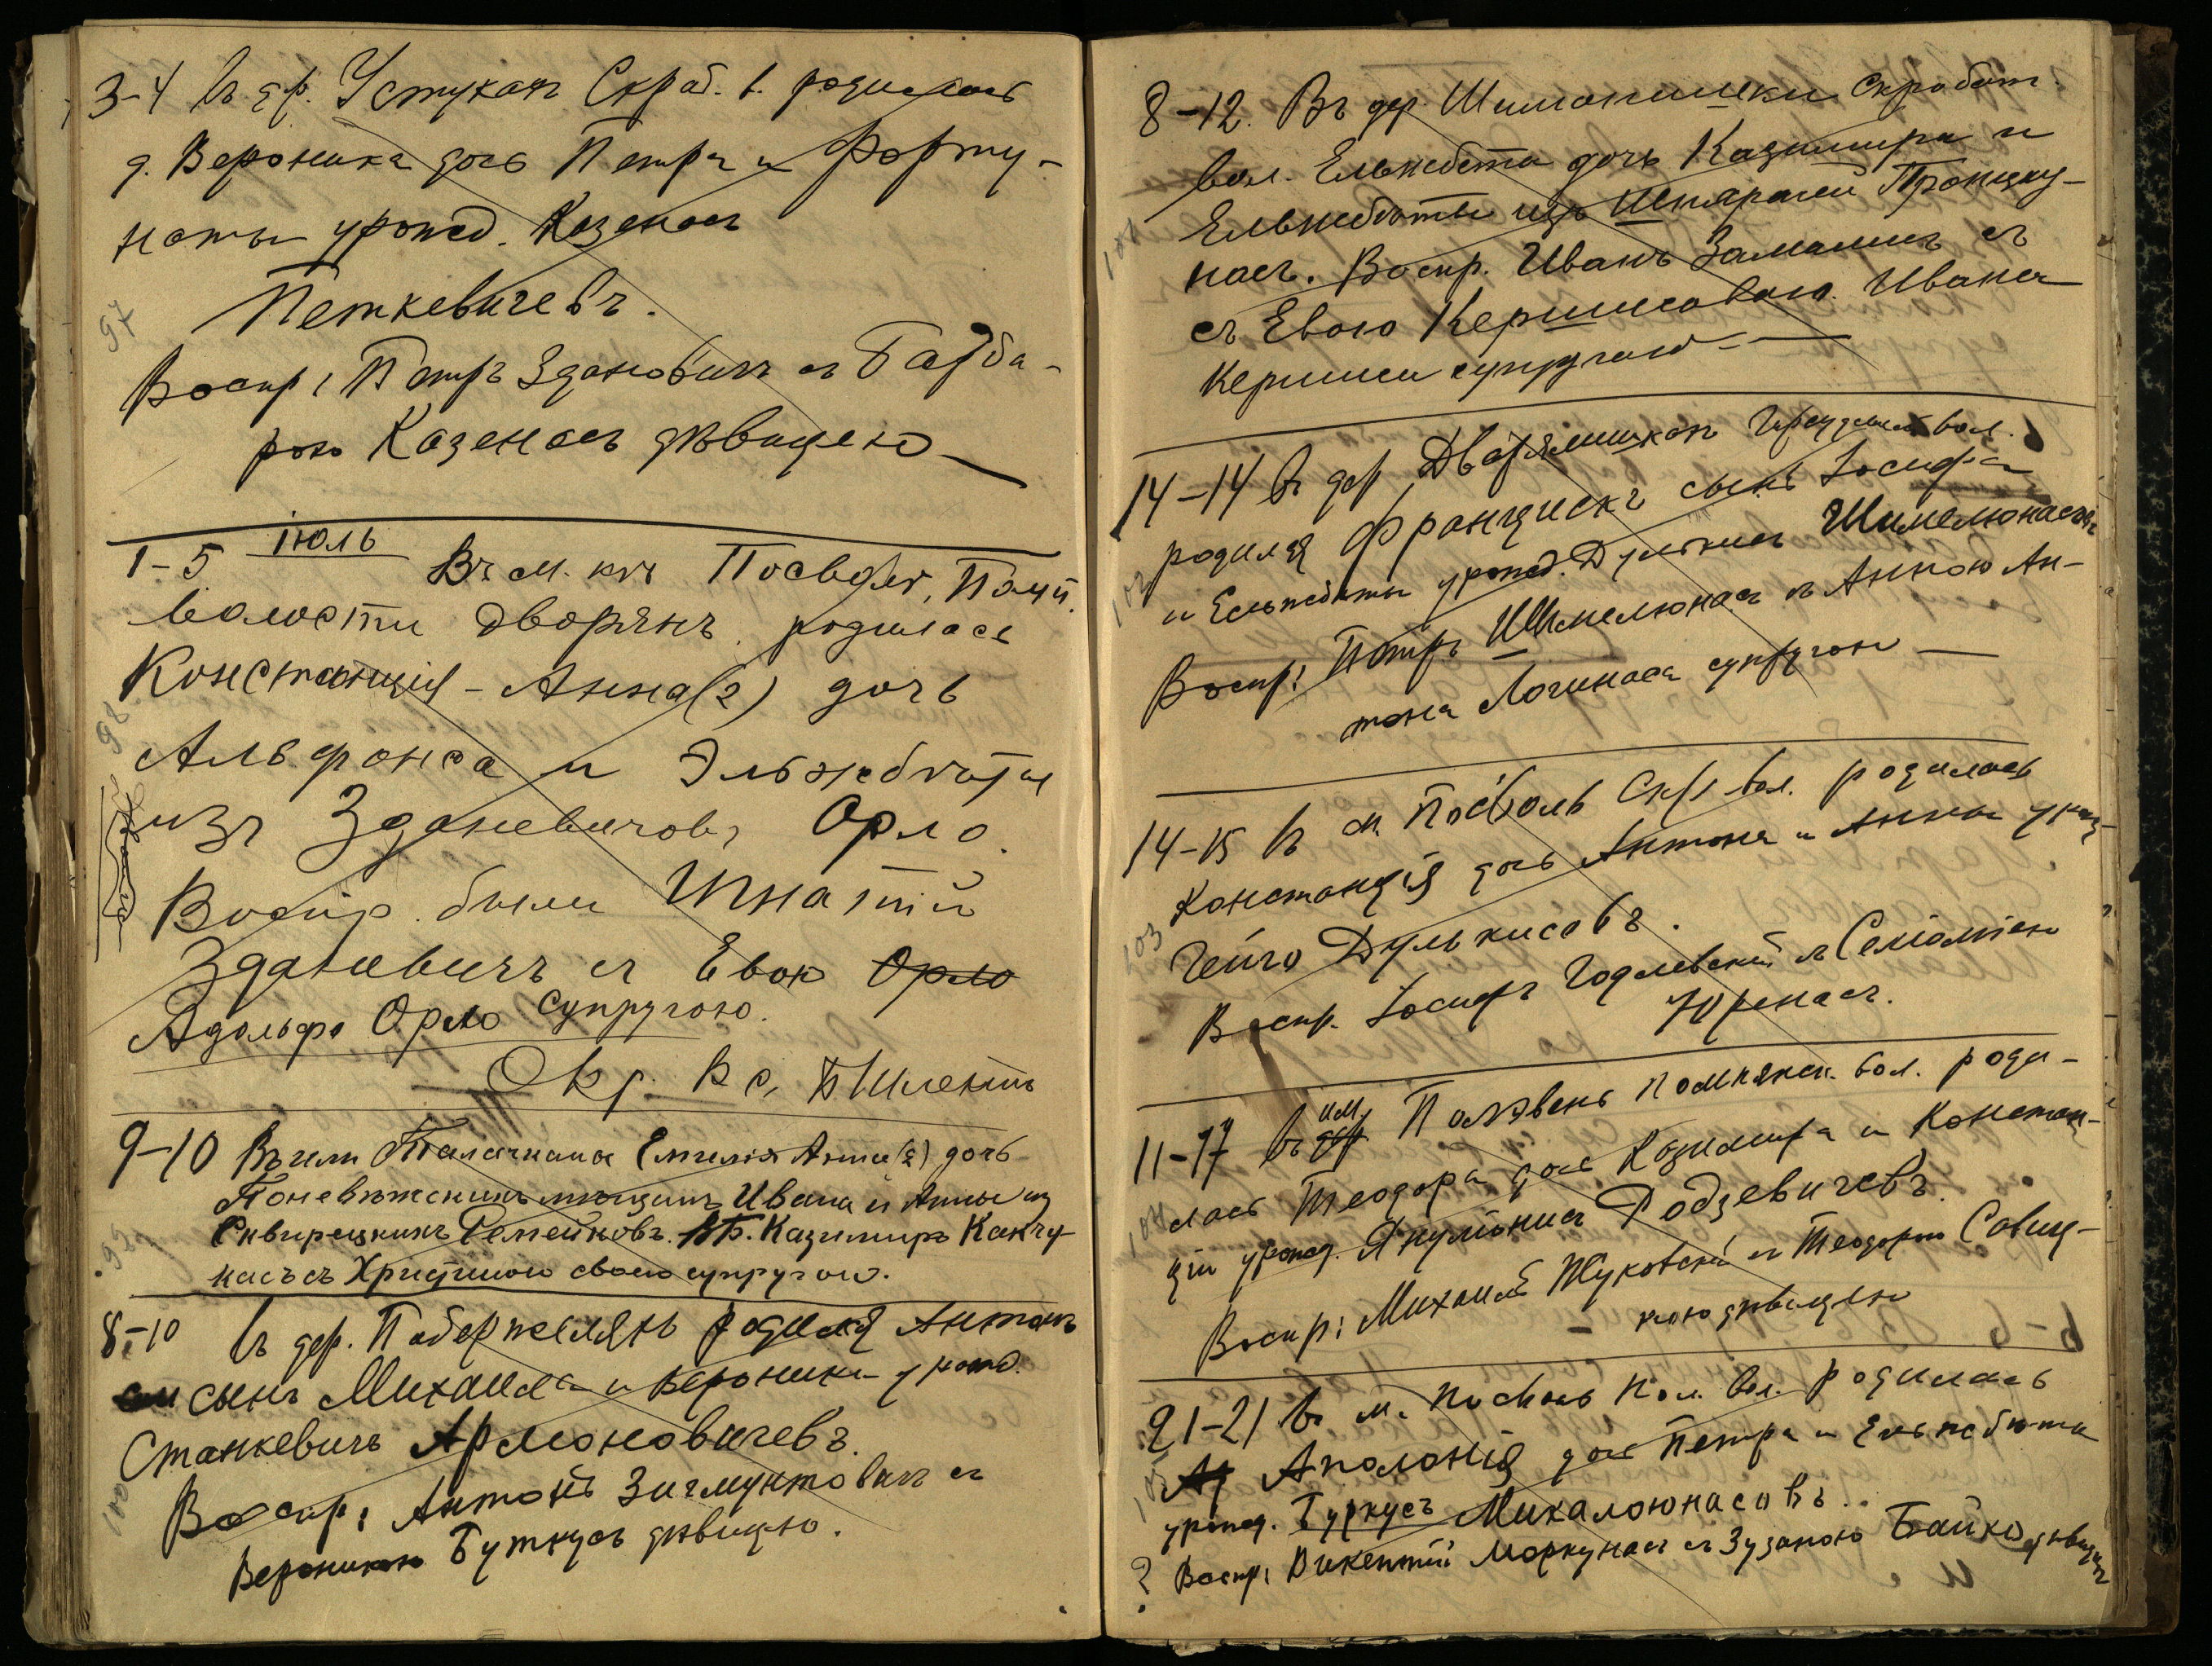 3-4 Въ др. Устукахъ Скраб. в. родилась
д. Вероника дочь Петра и Форту-
наты урожд. Казенасъ
Петкевичевъ.
97
Воспр: Петръ Здановичъ съ Барба-
рою Казенасъ дѣвицею
іюль
1-5 Въ м. Посволь, Помп.
волости дворянъ родилась
Констанція-Анна (2) дочь
98
Альфонса и Эльжбѣты
изъ Здановичовъ Орло.
Воспр. были Игнатій
Здановичъ съ Евою Орло
Адольфа Орло супругою.
Окр. Кс.
9-10 Емилія Анна (2) дочь
Поневѣжскихъ мѣщанъ Ивана и Анны из
Сквирецкихъ Семейковъ. ВП. Казимиръ Какчу-
насъ съ Христиною своею супругою.
99
8-10 въ дер. родился Антонъ
сынъ Михаила и Вероники урожд.
Станкевичъ Армоновичевъ.
100
Воспр: Антонъ Зигмунтовичъ съ
Вероникою Буткусъ дѣвицею.
8-12. Въ дер. Шиманишки Скробот.
вол. Ельжбета дочь Казимира и
101
Ельжбѣты изъ
насъ. Воспр. Иванъ съ
съ Евою Ивана
супругою
14-14 въ дер вол.
родился Францискъ сынъ Іосифа
102
и Ельжбѣты урожд. Дулькисъ Шимелюнасъ
Воспр: Петръ Шимелюнасъ съ Анною Ан-
тона Логинаса супругою
14-15 въ м. Посволь Скр. вол. родилась
Констанція дочь Антона и Анны урож.
103
Гейго Дулькисовъ.
Воспр. Іосифъ Годлевскій съ
Юренасъ.
11-17 въ им Помпянск. вол. роди-
лась Теодора дочь Казимира и Констан-
104
ціи урожд. Родзевичевъ.
Воспр: Михаилъ Жуковскій съ Теодорою Савиц-
кою дѣвицею
21-21 въ м. Посволь Пом. вол. родилась
Аполонія дочь Петра и Ельжбѣты
105
урожд. Буркусъ Микалоюнасовъ.
? Воспр: Викентій Моркунасъ съ Зузаною Байко дѣвиц